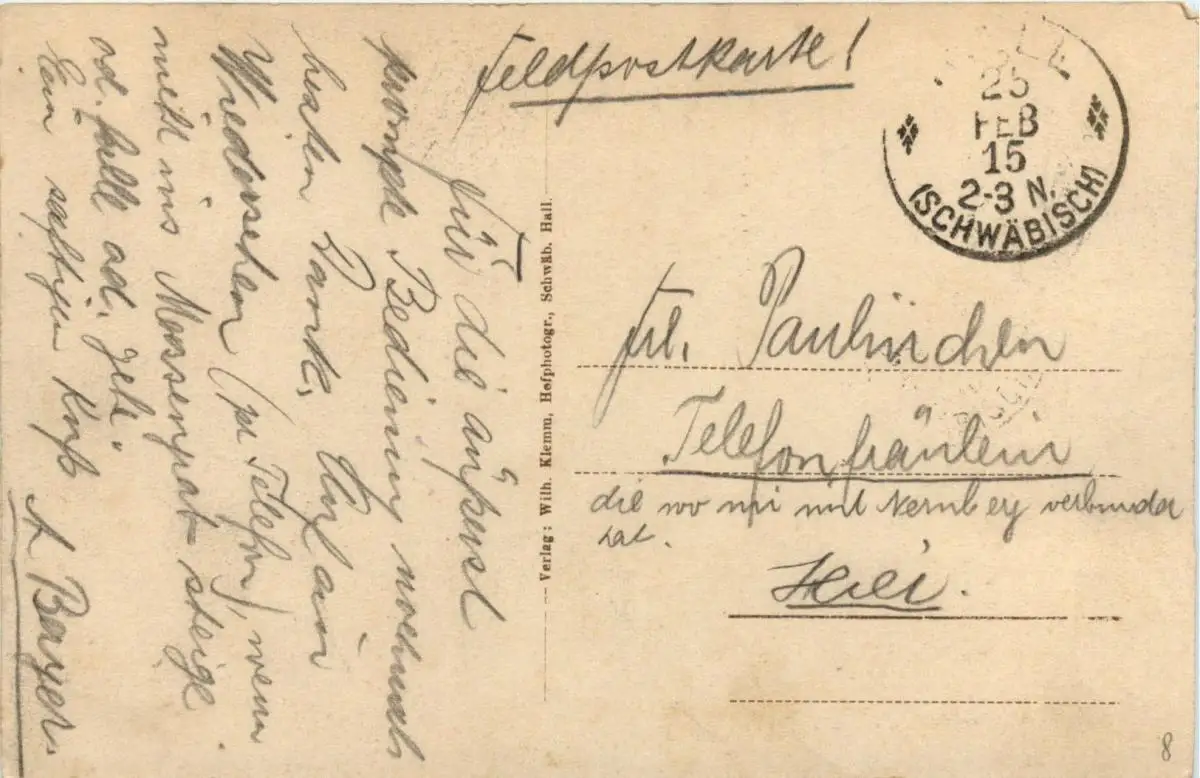 Feldpostkarte!
25
FEB
15
2-3 N.
(SCHWÄBISCH)
Für die äußerst
prompte Bedienung nochmals
besten Dank. Auf ein
Wiedersehen (per Telefon), wenn
nicht ins Massengrab steige
od. falle od. geh.
Ein saftigen Kuß
A Bayer.
Verlag: Wilh. Klemm, Hofphotogr., Schwäb. Hall.
Frl. Paulinchen
Telefonfräulein
die wo mi mit Nernberg verbunda
hat.
Hier.
8